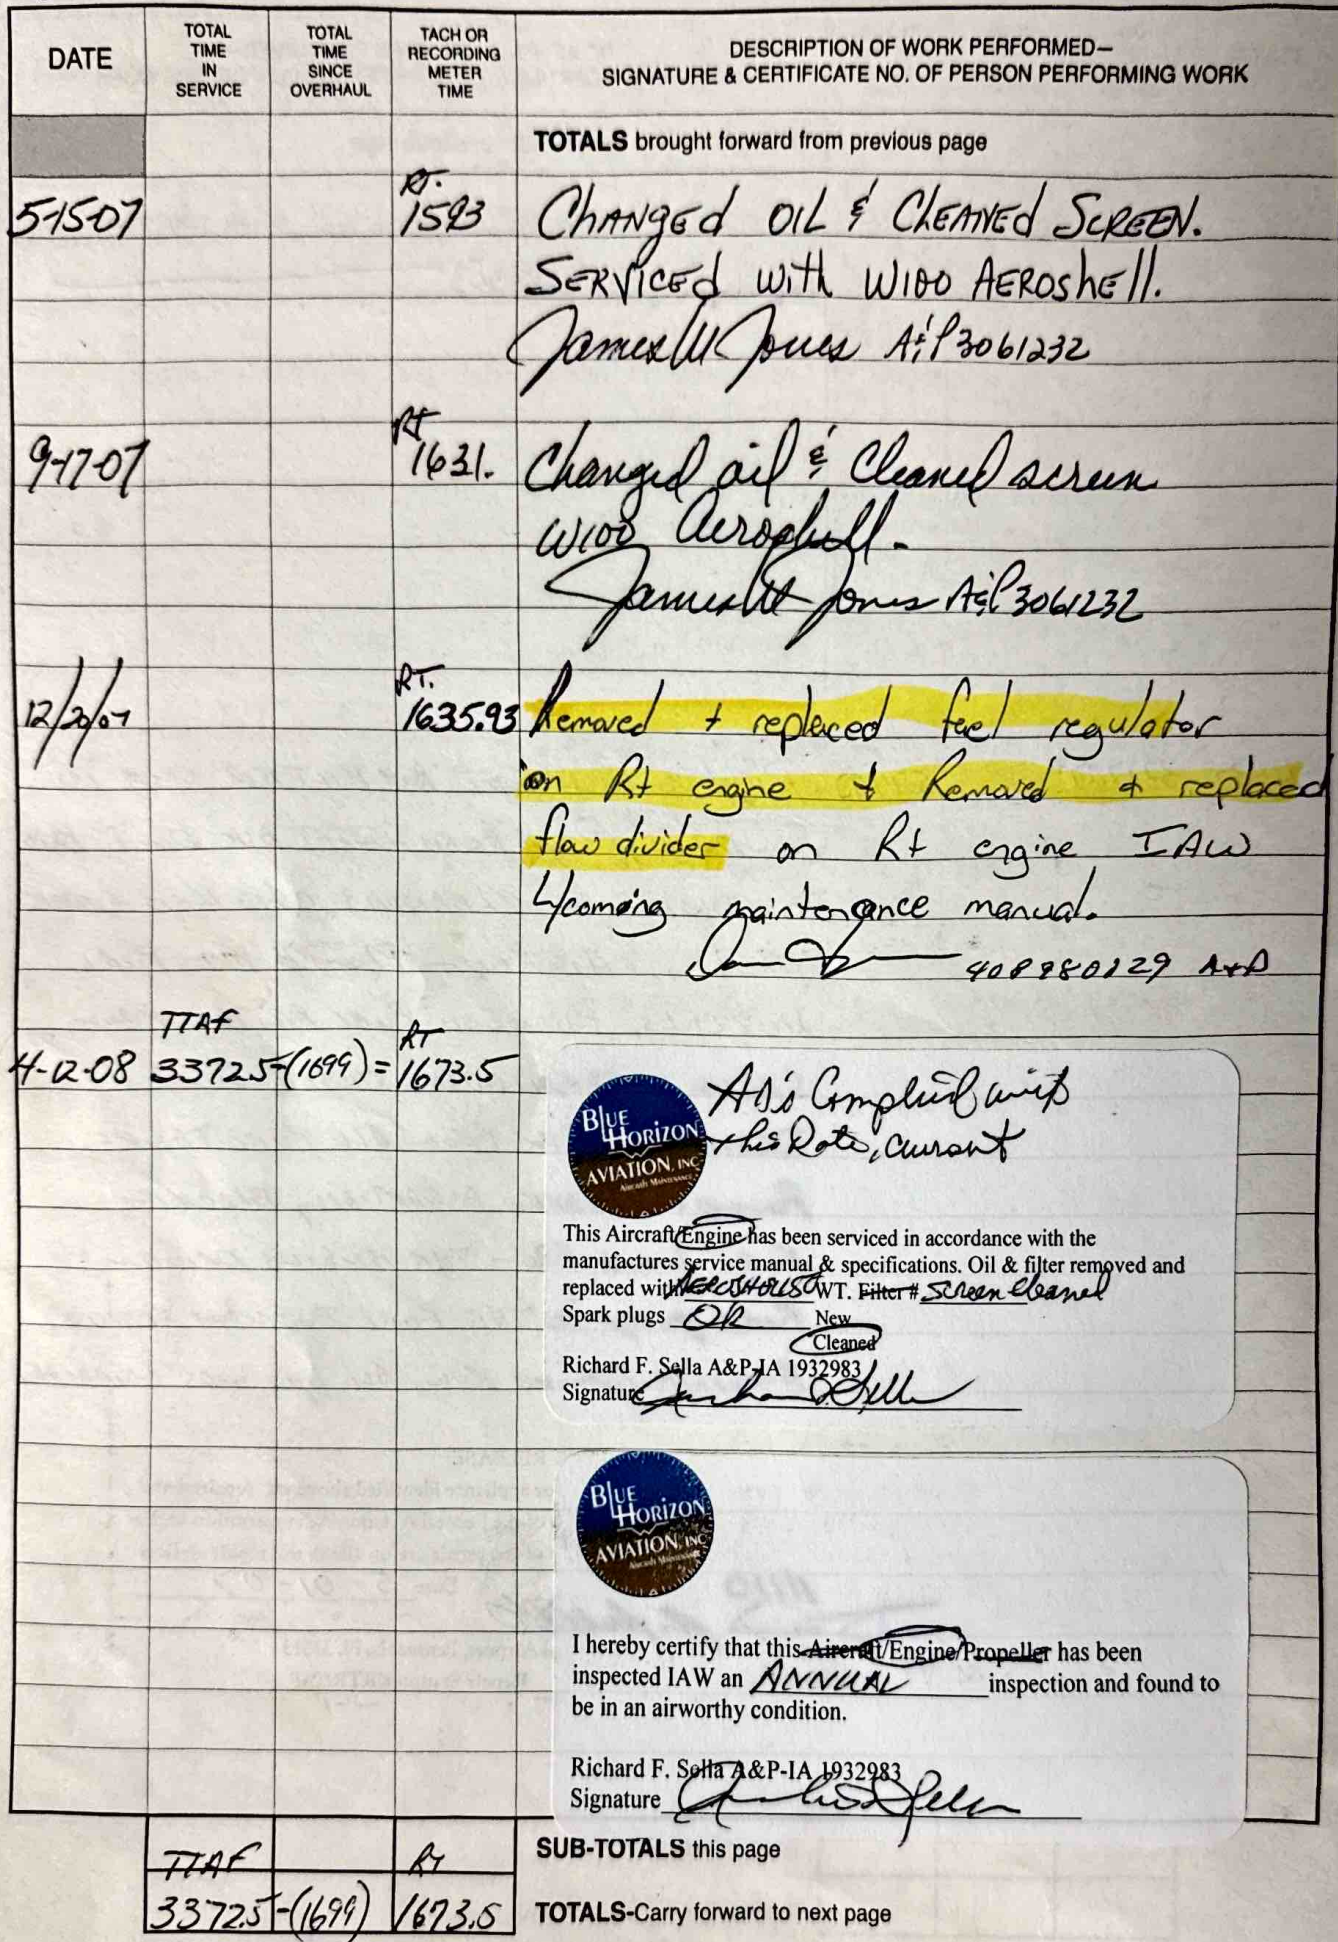 DATE
TOTAL TIME IN SERVICE
TOTAL TIME SINCE OVERHAUL
TACH OR RECORDING METER TIME
DESCRIPTION OF WORK PERFORMED–
SIGNATURE & CERTIFICATE NO. OF PERSON PERFORMING WORK
TOTALS brought forward from previous page
RT.
5-15-07 1593 CHANGEd OIL & CLEANED SCREEN.
SERVICEd with W100 AEROShEll.
James W Jones A&P 3061232
RT
9-17-07 1631. Changed oil & Cleaned screen
W100 Aeroshell.
James W Jones A&P 3061232
RT.
12/20/07 1635.93 Removed + replaced fuel regulator
on Rt engine & Removed & replaced
flow divider on Rt engine IAW
Lycoming maintenance manual.
408980129 A+P
TTAF RT
4-12-08 3372.5-(1699) = 1673.5
BLUE HORIZON
AVIATION, INC
Aircraft Maintenance
AD's Complied with
this Date, current
This Aircraft/Engine has been serviced in accordance with the
manufactures service manual & specifications. Oil & filter removed and
replaced with WT. Filter # Screen Cleaned
Spark plugs OK New
Cleaned
Richard F. Sella A&P-IA 1932983
Signature
BLUE HORIZON
AVIATION, INC
Aircraft Maintenance
I hereby certify that this Aircraft/Engine/Propeller has been
inspected IAW an ANNUAL inspection and found to
be in an airworthy condition.
Richard F. Sella A&P-IA 1932983
Signature
SUB-TOTALS this page
TTAF RT
3372.5-(1699) 1673.5 TOTALS-Carry forward to next page